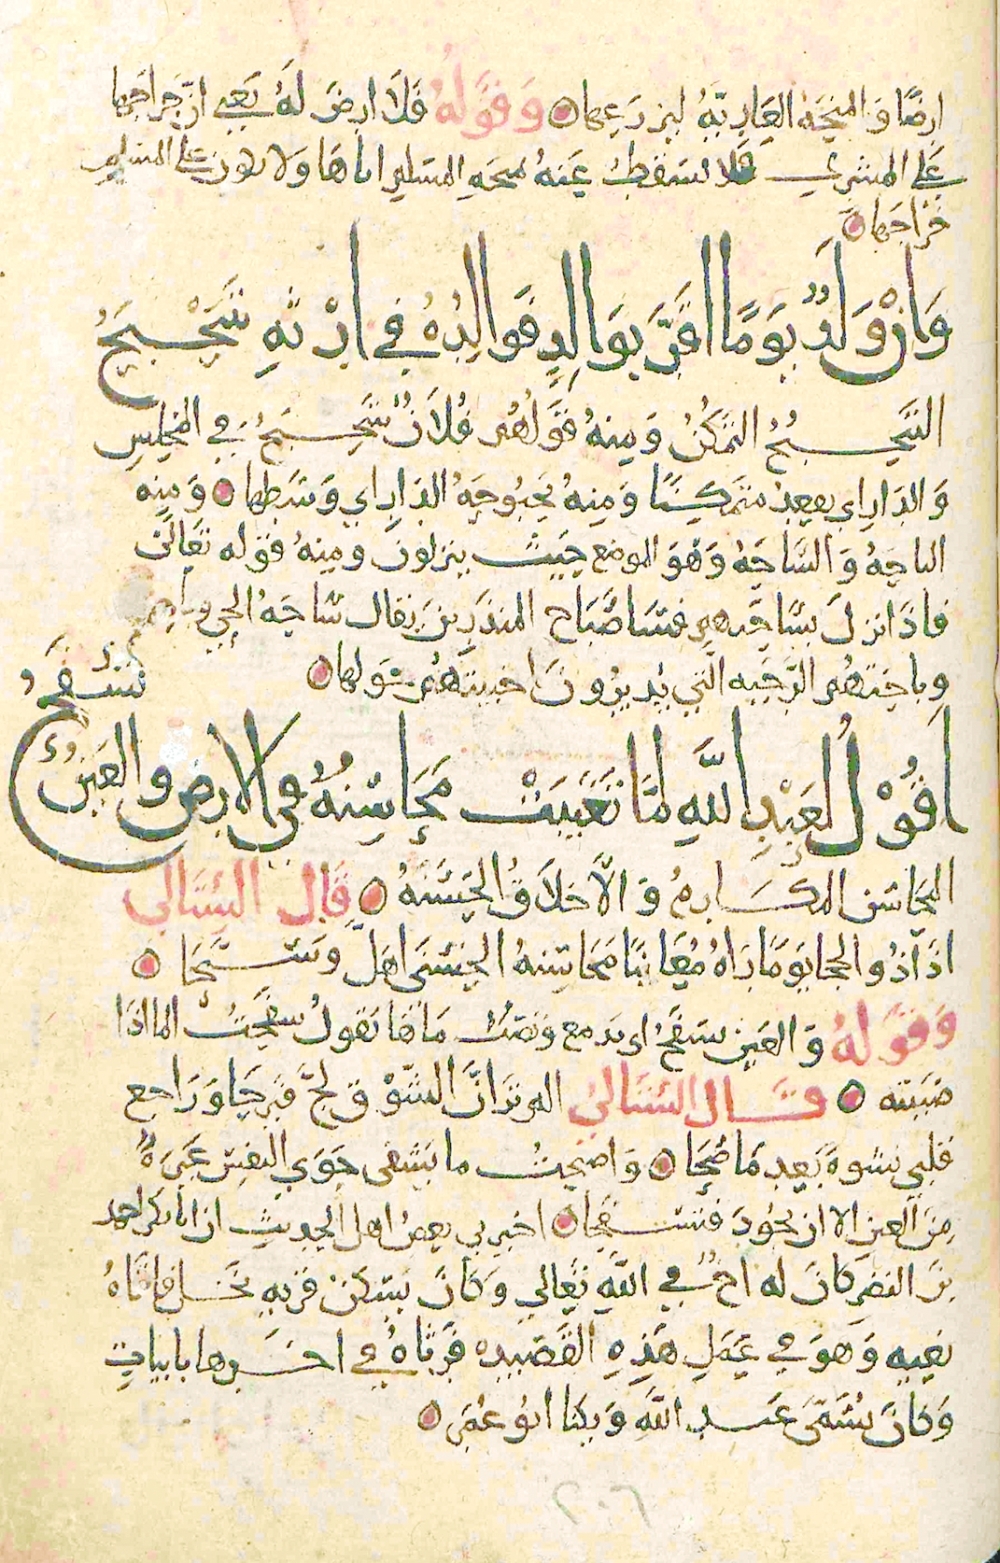 ارضًا وَالمنحَة العَارِيّة ليزرَعها ۞ وَقَوْلهُ فَلَا ارضَ لَهُ يَعني انّ خراجَها
عَلى المشتري فلا يسقط عَنهُ منحَه المسلم اياهَا ولا يكون على المسلم
خراجَها ۞
وَانْ وَلَدٌ يَوْمًا اقَرَّ بوَالِدٍ فَوَالِدُهُ في ارْثهِ يَتَبَحْبَحُ
التبَحبُحُ التمكنُ وَمِنهُ قَوْلُهُم فُلَانٌ يتبَحبَحُ في المجلسِ
وَالدَارِ اي يقعد متمكنًا وَمِنهُ بَحبُوحَهُ الدَارِ اي وَسَطها ۞ وَمِنه
الباحَهُ وَالسَّاحَهُ وَهوَ الموضع حَيث ينزلونَ ومِنهُ قوْله تعَالى
فاذَا نزلَ بسَاحَتهم فسَاءَ صَبَاح المنذَرِينَ يقال سَاحَهُ الحي
وباحَتهُم الرّحبَه التي يُديرُونَ اخبيتهُم حَولها ۞
اقُوْلُ لِعَبْدِ اللهِ لمَّا تغَيَّبَتْ مَحَاسِنُهُ في الارض والعَينُ تسفَحُ
المحَاسن المكَارمُ وَالاخلَاقُ الحَسَنَهُ ۞ قَالَ الستَالي
اذَا ذو الحجا يَوْمًا رَاهُ مُعَاينًا محَاسنهُ الحسنى اهَلَّ وَسَبَّحَا ۞
وَقَوْلهُ وَالعَين تسفَحُ اي تدمع وَتصُب مَاءَها تقولُ سفَحتُ الما اذَا
صَبَبته ۞ قَال الستَاليُ الم ترَ انَّ الشوْق لجَّ فبَرحَا وَرَاجع
قلبي نشوة بَعد مَا صَحَا ۞ وَاصبحتُ ما يَشفي جَوَي النفس عَبرَةٌ
مِنَ العين الا ان تجُودَ فتسفحَا ۞ اخبرني بعضُ اهل الحديثِ ان ابا بكر احمد
بنَ النضر كانَ له اخٌ في اللهِ تعَالى وَكَانَ يسكن قريه نخل فاتَاهُ
نعيه وَهوَ في عَمَلِ هَذِهِ القصَيدَه فرَثاهُ في اخرها بابياتٍ
وَكَانَ يُسَمّى عَبد اللهِ وَيكنا ابو عُمَر ۞
٢٠٦